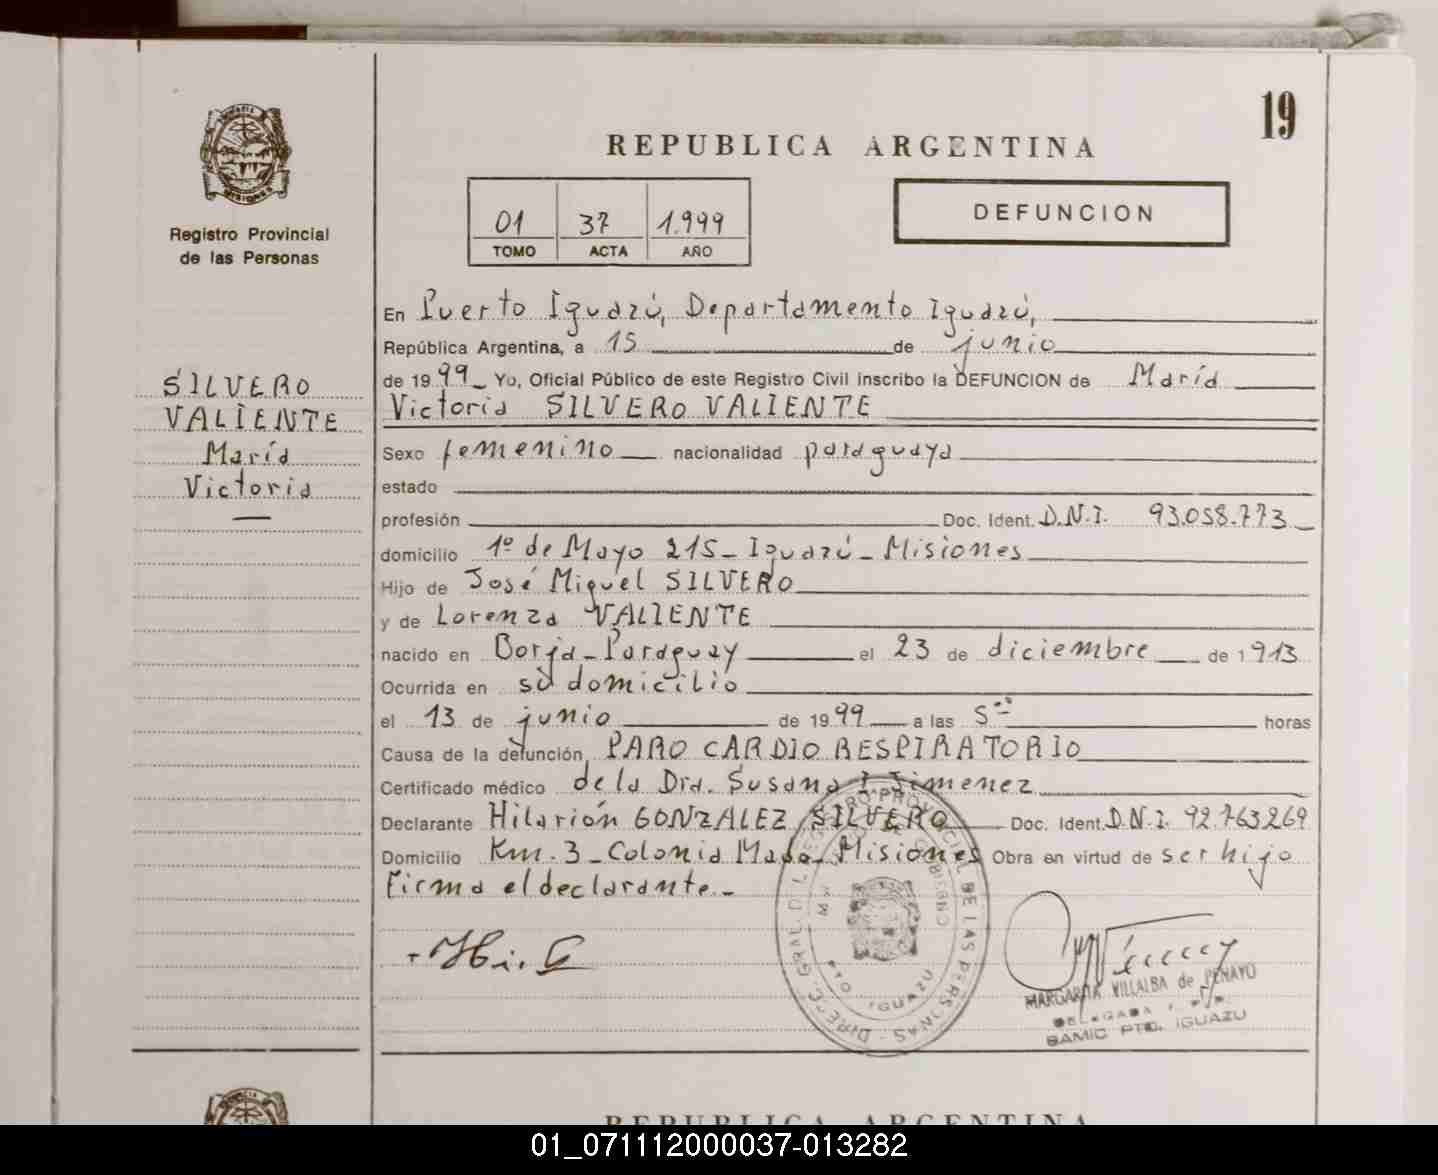 19
REPUBLICA ARGENTINA
01 37 1.999
TOMO ACTA AÑO
DEFUNCION
MISIONES
Registro Provincial
de las Personas
SILVERO
VALIENTE
María
Victoria
En Puerto Iguazú, Departamento Iguazú,
República Argentina, a 15 de junio
de 1999 Yo, Oficial Público de este Registro Civil inscribo la DEFUNCION de María
Victoria SILVERO VALIENTE
Sexo femenino nacionalidad paraguaya
estado
profesión Doc. Ident. D.N.I. 93.058.773
domicilio 1º de Mayo 215 - Iguazú - Misiones
Hijo de José Miguel SILVERO
y de Lorenza VALIENTE
nacido en Borja - Paraguay el 23 de diciembre de 1913
Ocurrida en su domicilio
el 13 de junio de 1999 a las 5 horas
Causa de la defunción PARO CARDIO RESPIRATORIO
Certificado médico de la Dra. Susana I Jimenez
Declarante Hilarión GONZALEZ SILVERO Doc. Ident. D.N.I. 92.763269
Domicilio Km. 3 - Colonia Misiones Obra en virtud de ser hijo
Firma el declarante.-
DIREC. GRAL. DEL REGISTRO PROVINCIAL DE LAS PERSONAS
PTO. IGUAZU
MARGARITA VILLALBA de PENAYO
DELEGADA
SAMIC PTO. IGUAZU
REPUBLICA ARGENTINA
01_071112000037-013282